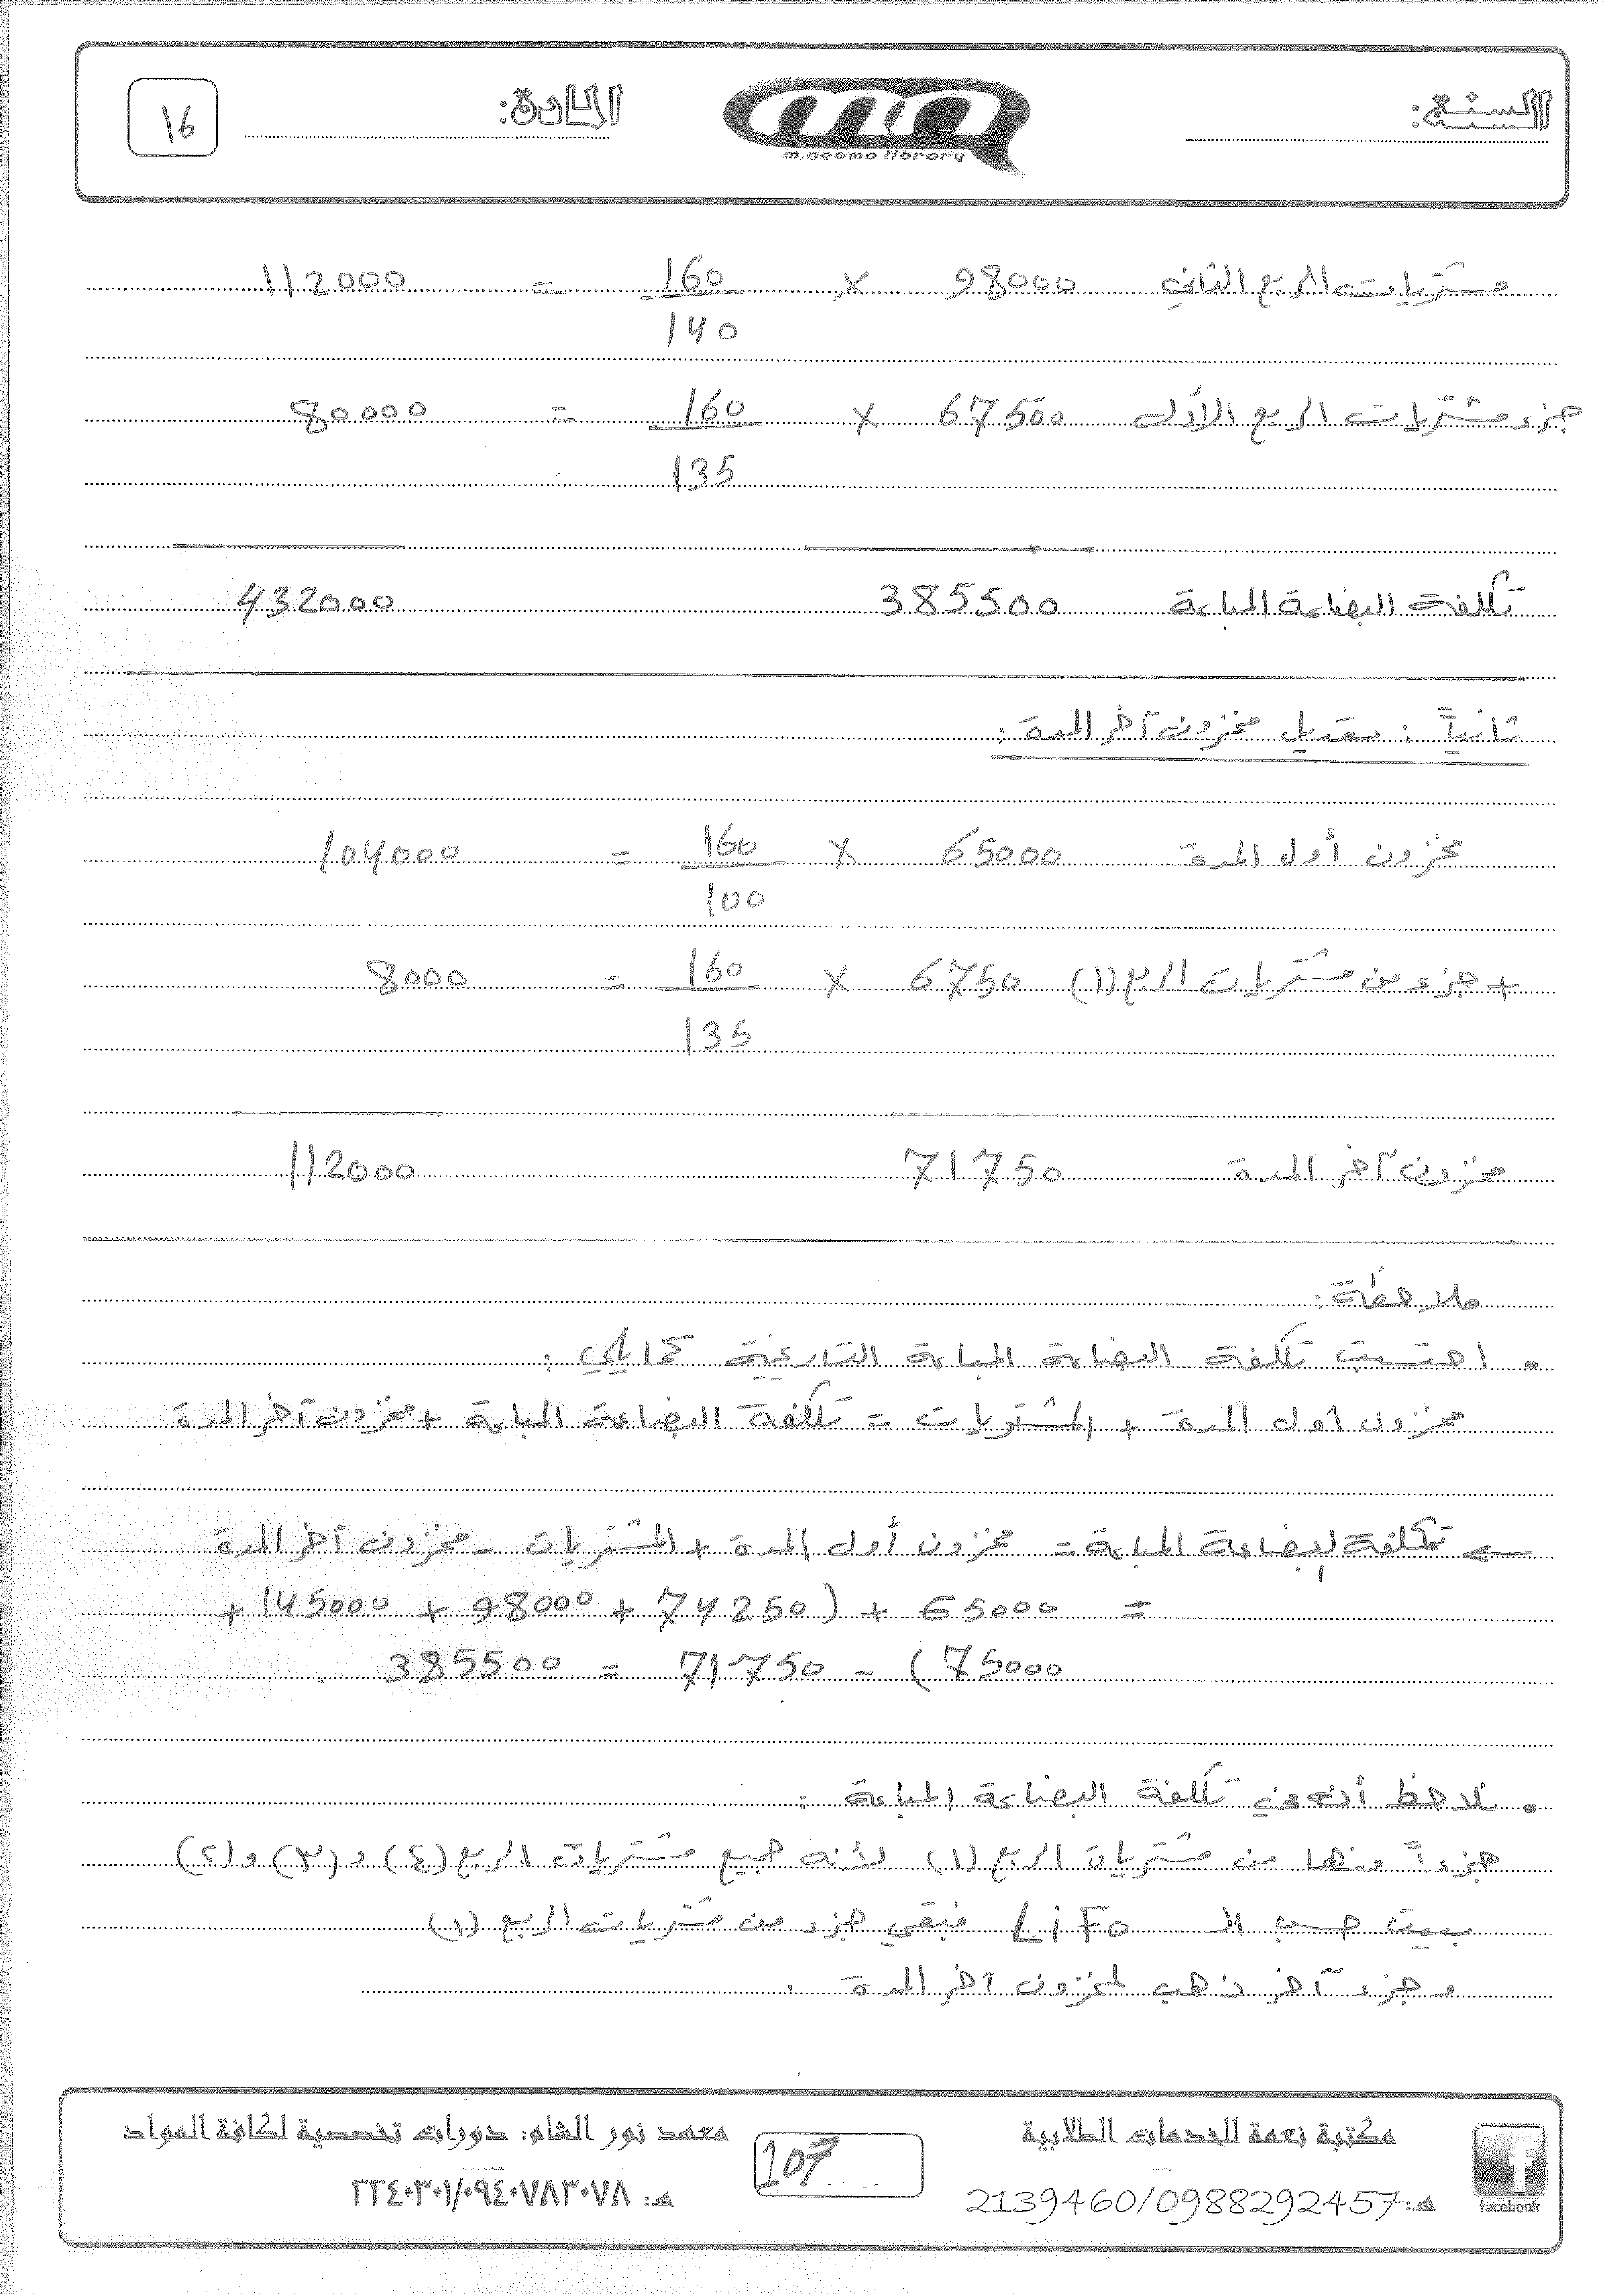 السنة:
المادة:
16
m.neama library
مشتريات الربع الثاني 98000 × 160 = 112000
140
جزء مشتريات الربع الأول 67500 × 160 = 80000
135
تكلفة البضاعة المباعة 385500 432000
ثانياً : تعديل مخزون آخر المدة :
مخزون أول المدة 65000 × 160 = 104000
100
+ جزء من مشتريات الربع (١) 6750 × 160 = 8000
135
مخزون آخر المدة 71750 112000
ملاحظة :
• احتسبت تكلفة البضاعة المباعة التاريخية كمايلي :
مخزون أول المدة + المشتريات = تكلفة البضاعة المباعة + مخزون آخر المدة
← تكلفة البضاعة المباعة = مخزون أول المدة + المشتريات - مخزون آخر المدة
= 65000 + (74250 + 98000 + 145000 +
75000) - 71750 = 385500 .
• نلاحظ أنه في تكلفة البضاعة المباعة :
جزءاً منها من مشتريات الربع (١) لأنه جميع مشتريات الربع (٤) و (٣) و (٢)
بيعت حسب الـ LiFo فبقي جزء من مشتريات الربع (١)
وجزء آخر ذهب لمخزون آخر المدة .
facebook
مكتبة نعمة للخدمات الطلابية
هـ: 2139460/0988292457
107
معهد نور الشام: دورات تخصصية لكافة المواد
هـ: ٢٢٤٠٣٠١/٠٩٤٠٧٨٣٠٧٨